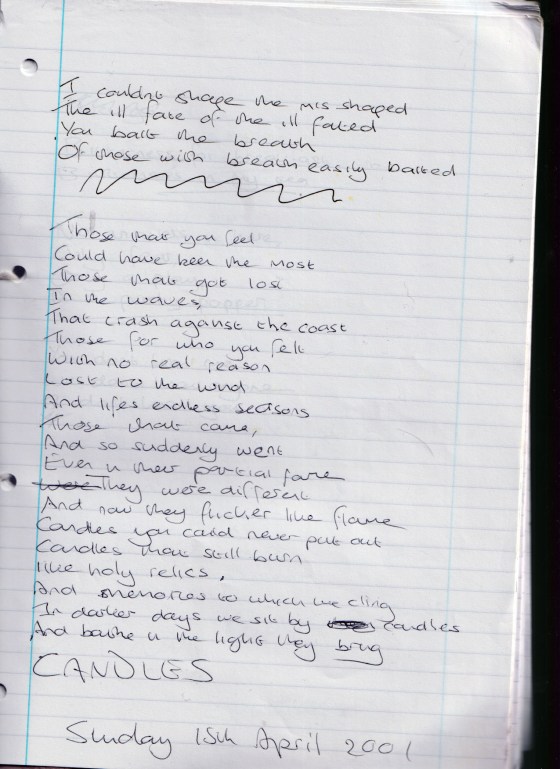 I couldnt shape the mis shaped
The ill fate of the ill fated
You bait the breath
Of those with breath easily baited
Those that you feel
Could have been the most
Those that got lost
In the waves,
That crash against the coast
Those for who you felt
With no real reason
Lost to the wind
And lifes endless seasons
Those that came,
And so suddenly went
Even in their partial fame
They were different
And now they flicker like flame
Candles you could never put out
Candles that still burn
like holy relics,
And memories to which we cling
In darker days we sit by candles
And bathe in the light they bring
CANDLES
Sunday 15th April 2001